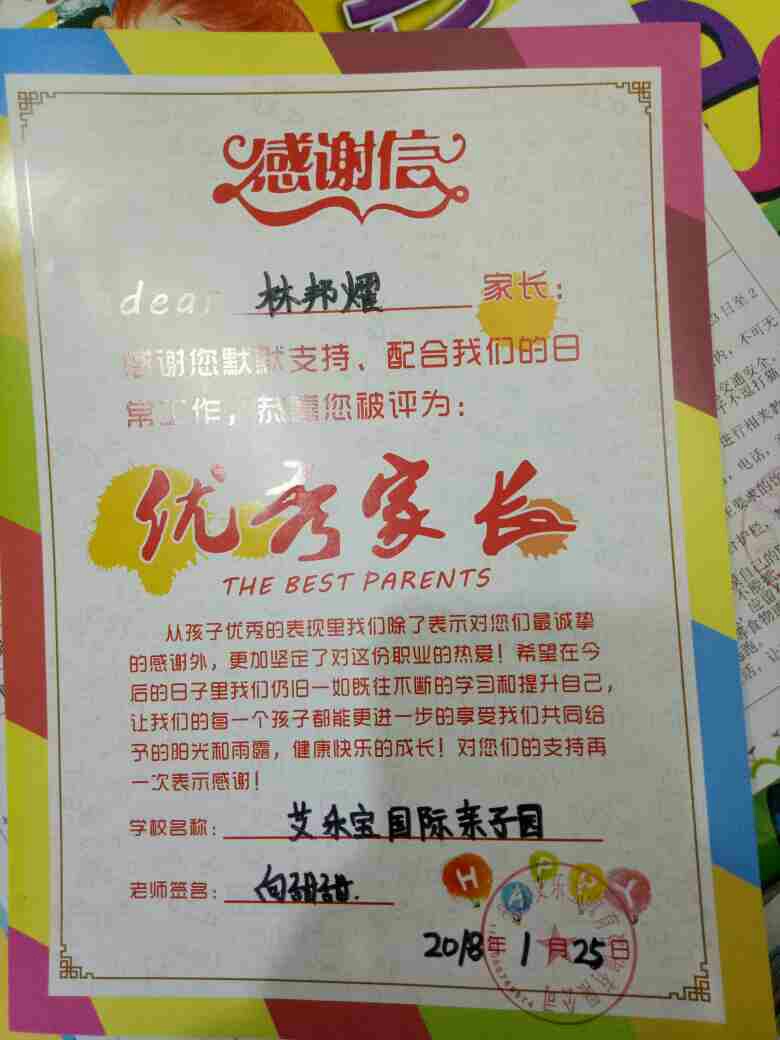 感谢信
dear 林邦耀 家长：
感谢您默默支持、配合我们的日
常工作，恭喜您被评为：
优秀家长
THE BEST PARENTS
从孩子优秀的表现里我们除了表示对您们最诚挚
的感谢外，更加坚定了对这份职业的热爱！希望在今
后的日子里我们仍旧一如既往不断的学习和提升自己，
让我们的每一个孩子都能更进一步的享受我们共同给
予的阳光和雨露，健康快乐的成长！对您们的支持再
一次表示感谢！
学校名称：艾乐宝国际亲子园
老师签名：向甜甜.
HAPPY
2018年1月25日
3日至2
内，不可无
交通安全
子不退打猫
进行相关
电话，